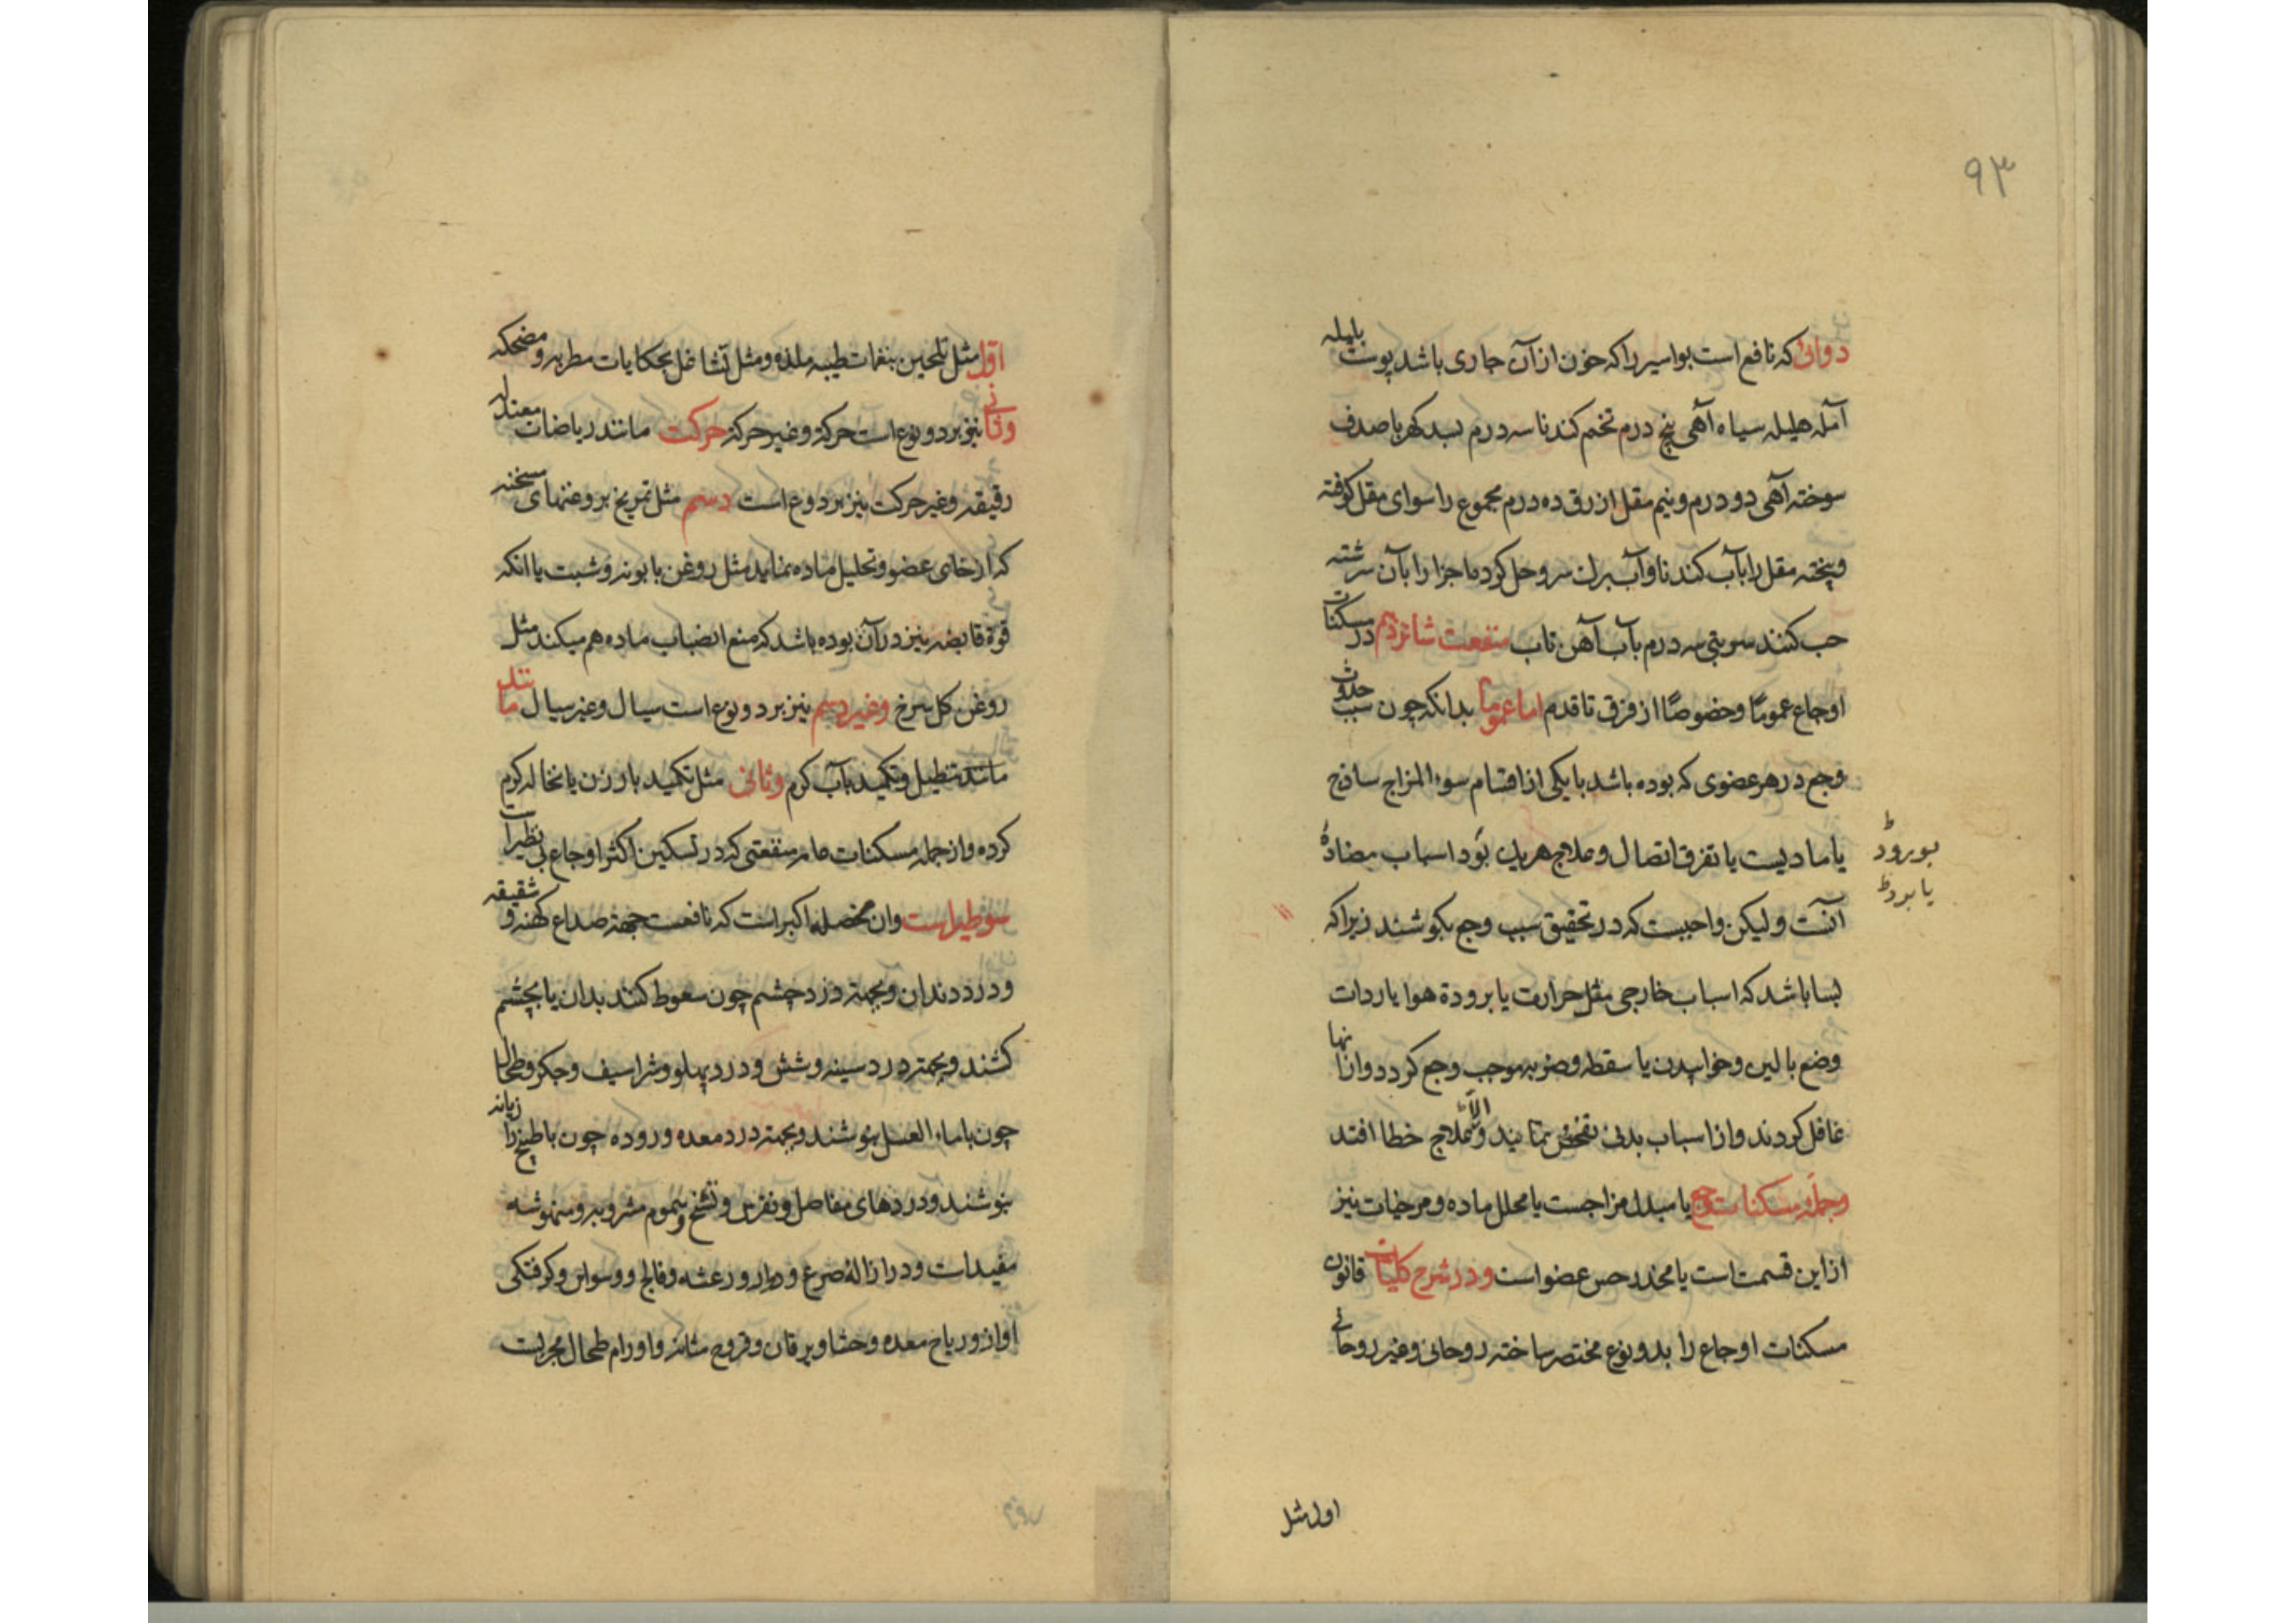 ۹۳
دوائی که نافع است بواسیر را که خون از آن جاری باشد پوست بلیله
آمله هلیله سیاه آهی پنج درم تخم کندنا سه درم بسد کهربا صدف
سوخته آهی دو درم و نیم مقل ازرق ده درم مجموع را سوای مقل کوفته
و پخته مقل را بآب کندنا و آب حل کرده اجزا را بآن سرشته
حب کنند سه درم بآب آهن تاب منفعت شانزدهم در مسکنات
اوجاع عموماً و خصوصاً از فرق تا قدم اما عموماً بدانکه چون سبب حدوث
وجع در هر عضوی که بوده باشد با یکی از اقسام سوء المزاج ساذج
یا مادیست یا تفرق اتصال و علاج هریک بود اسباب مضادهٔ
آنست و لیکن واجبست که در تحقیق سبب وجع بکوشند زیرا که
بسا باشد که اسباب خارجی مثل حرارت یا برودة هوا یا ردات
وضع بالین و خوابیدن یا سقطه و ضربه موجب وجع کردد و از آنها
غافل کردند و از اسباب بدنی تفحص نمایند و الا علاج خطا افتد
و جمله مسکنات وجع یا مبدل مزاجست یا محلل ماده و مرخیات نیز
از این قسمت است یا مخدر حس عضو است و در شرح کلیات قانون
مسکنات اوجاع را بدو نوع مختصر ساخته روحانی و غیر روحانی
بورود
یا برود
اول مثل
اول مثل تلحین بنغمات طیبه ملذه و مثل تشاغل بحکایات مطربه و مضحکه
و ثانی نیز بر دو نوع است حرکة و غیر حرکة حرکت مانند ریاضات معتدله
رقیقه و غیر حرکت نیز بر دو نوع است دسم مثل تمریخ بروغنهای مسخنه
که ارخای عضو و تحلیل ماده نماید مثل روغن بابونه و شبت یا انکه
قوة قابضه نیز در آن بوده باشد که منع انصباب ماده هم میکند مثل
روغن کل سرخ و غیر دسم نیز بر دو نوع است سیال و غیر سیال مانند
مانند تنطیل و تکمید بآب کرم و ثانی مثل تکمید بارزن یا نخاله کرم
کرده و از جمله مسکنات عامه منفعتی که در تسکین اکثر اوجاع بی نظیر است
سوطیرا است و ان مخصله اکبر است که نافعست جهة صداع کهنه و شقیقه
و درد دندان و بجهة درد چشم چون سعوط کنند بدان یا بچشم
کشند و بجهة درد سینه و شش و درد پهلو و شراسیف و جکر و طحال
چون با ماء العسل بنوشند و بجهة درد معده و روده چون با طبیخ رازیانه
بنوشند و دردهای مفاصل و نقرس و تشنج و سموم مشروبه و منهوشه
مفیدات و در ازالهٔ صرع و دوار و رعشه و فالج و وسواس و کرفتکی
اواز و ریاح معده و حشا و یرقان و قروح مثانه و اورام طحال مجربست